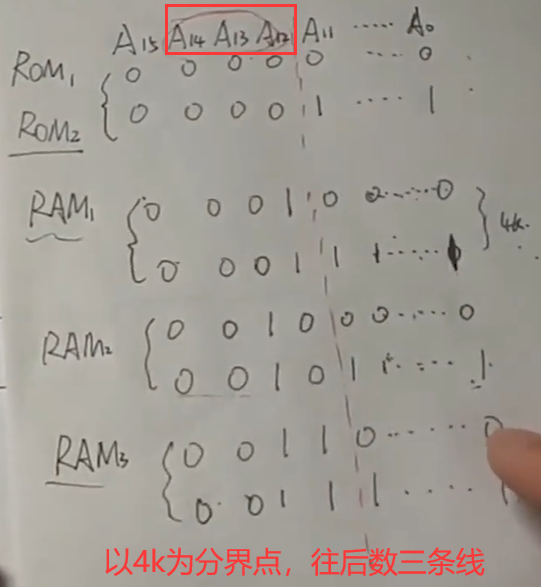 A15 A14 A13 A12 A11 ..... A0
ROM1 0 0 0 0 0 .... 0
ROM2 0 0 0 0 1 .... 1
RAM1 0 0 0 1 0 0 ...... 0
0 0 0 1 1 1 ...... 4k
RAM2 0 0 1 0 0 0 ..... 0
0 0 1 0 1 1 ..... 1
RAM3 0 0 1 1 0 ...... 0
0 0 1 1 1 ....
以4k为分界点，往后数三条线